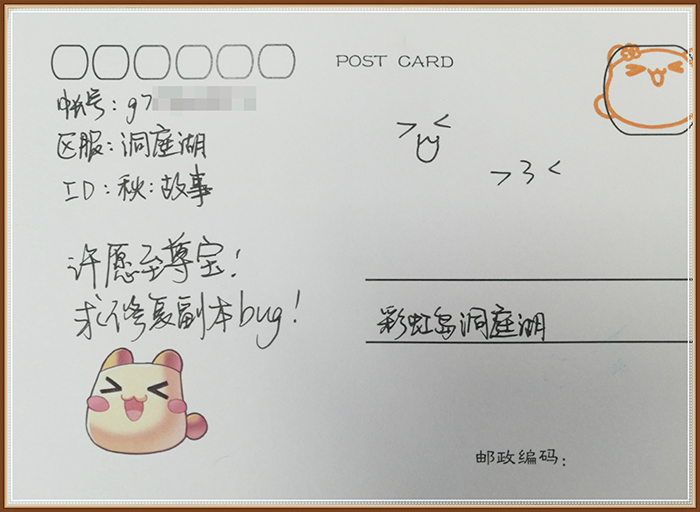 POST CARD
中奖号：g7
区服：洞庭湖
ID：秋：故事
许愿至尊宝！
求修复副本bug！
彩虹岛洞庭湖
邮政编码：